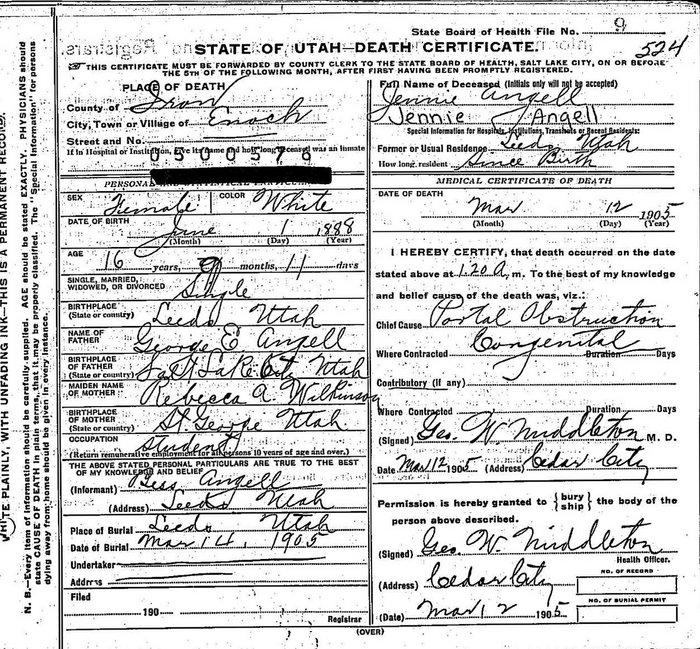 State Board of Health File No. 9
524
STATE OF UTAH—DEATH CERTIFICATE.
THIS CERTIFICATE MUST BE FORWARDED BY COUNTY CLERK TO THE STATE BOARD OF HEALTH, SALT LAKE CITY, ON OR BEFORE
THE 5TH OF THE FOLLOWING MONTH, AFTER FIRST HAVING BEEN PROMPTLY REGISTERED.
PLACE OF DEATH
County of Iron
City, Town or Village of Enoch
Street and No.
If in Hospital or Institution, give its name and how long deceased was an inmate
0500576
PERSONAL AND STATISTICAL PARTICULARS
SEX Female COLOR White
DATE OF BIRTH June 1 1888
(Month) (Day) (Year)
AGE 16 years, 9 months, 11 days
SINGLE, MARRIED,
WIDOWED, OR DIVORCED Single
BIRTHPLACE
(State or country) Leeds Utah
NAME OF
FATHER George E Angell
BIRTHPLACE
OF FATHER
(State or country) Salt Lake City Utah
MAIDEN NAME
OF MOTHER Rebecca A Wilkinson
BIRTHPLACE
OF MOTHER
(State or country) St George Utah
OCCUPATION
Student
(Return remunerative employment for all persons 10 years of age and over.)
THE ABOVE STATED PERSONAL PARTICULARS ARE TRUE TO THE BEST
OF MY KNOWLEDGE AND BELIEF
(Informant) Bess Angell
(Address) Leeds Utah
Place of Burial Leeds Utah
Date of Burial Mar 14, 1905
Undertaker
Address
Filed
190 Registrar
(OVER)
Full Name of Deceased (Initials only will not be accepted)
Jennie Angell
Jennie Angell
Special Information for Hospitals, Institutions, Transients or Recent Residents:
Former or Usual Residence Leeds Utah
How long resident Since Birth
MEDICAL CERTIFICATE OF DEATH
DATE OF DEATH
Mar 12 1905
(Month) (Day) (Year)
I HEREBY CERTIFY, that death occurred on the date
stated above at 1.20 A, m. To the best of my knowledge
and belief cause of the death was, viz.:
Chief Cause Portal Obstruction
Congenital
Where Contracted Duration Days
Contributory (if any)
Where Contracted Duration Days
(Signed) Geo. W. Middleton M. D.
Date Mar 12 1905 (Address) Cedar City
Permission is hereby granted to { bury ship } the body of the
person above described.
(Signed) Geo. W. Middleton
Health Officer.
(Address) Cedar City
NO. OF RECORD
NO. OF BURIAL PERMIT
(Date) Mar 12 1905
WRITE PLAINLY, WITH UNFADING INK—THIS IS A PERMANENT RECORD.
N. B.—Every item of information should be carefully supplied. AGE should be stated EXACTLY. PHYSICIANS should
state CAUSE OF DEATH in plain terms, that it may be properly classified. The "Special Information" for persons
dying away from home should be given in every instance.